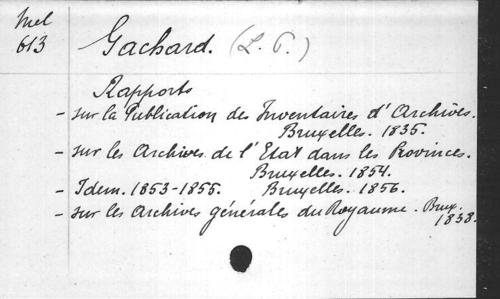 Mel
613
Gachard. (L. P.)
Rapports
- sur la Publication des Inventaires d'Archives.
Bruxelles. 1835.
- sur les Archives de l'Etat dans les Provinces.
Bruxelles. 1854.
- Idem. 1853-1855. Bruxelles. 1856.
- sur les Archives générales du Royaume. Brux.
1838.